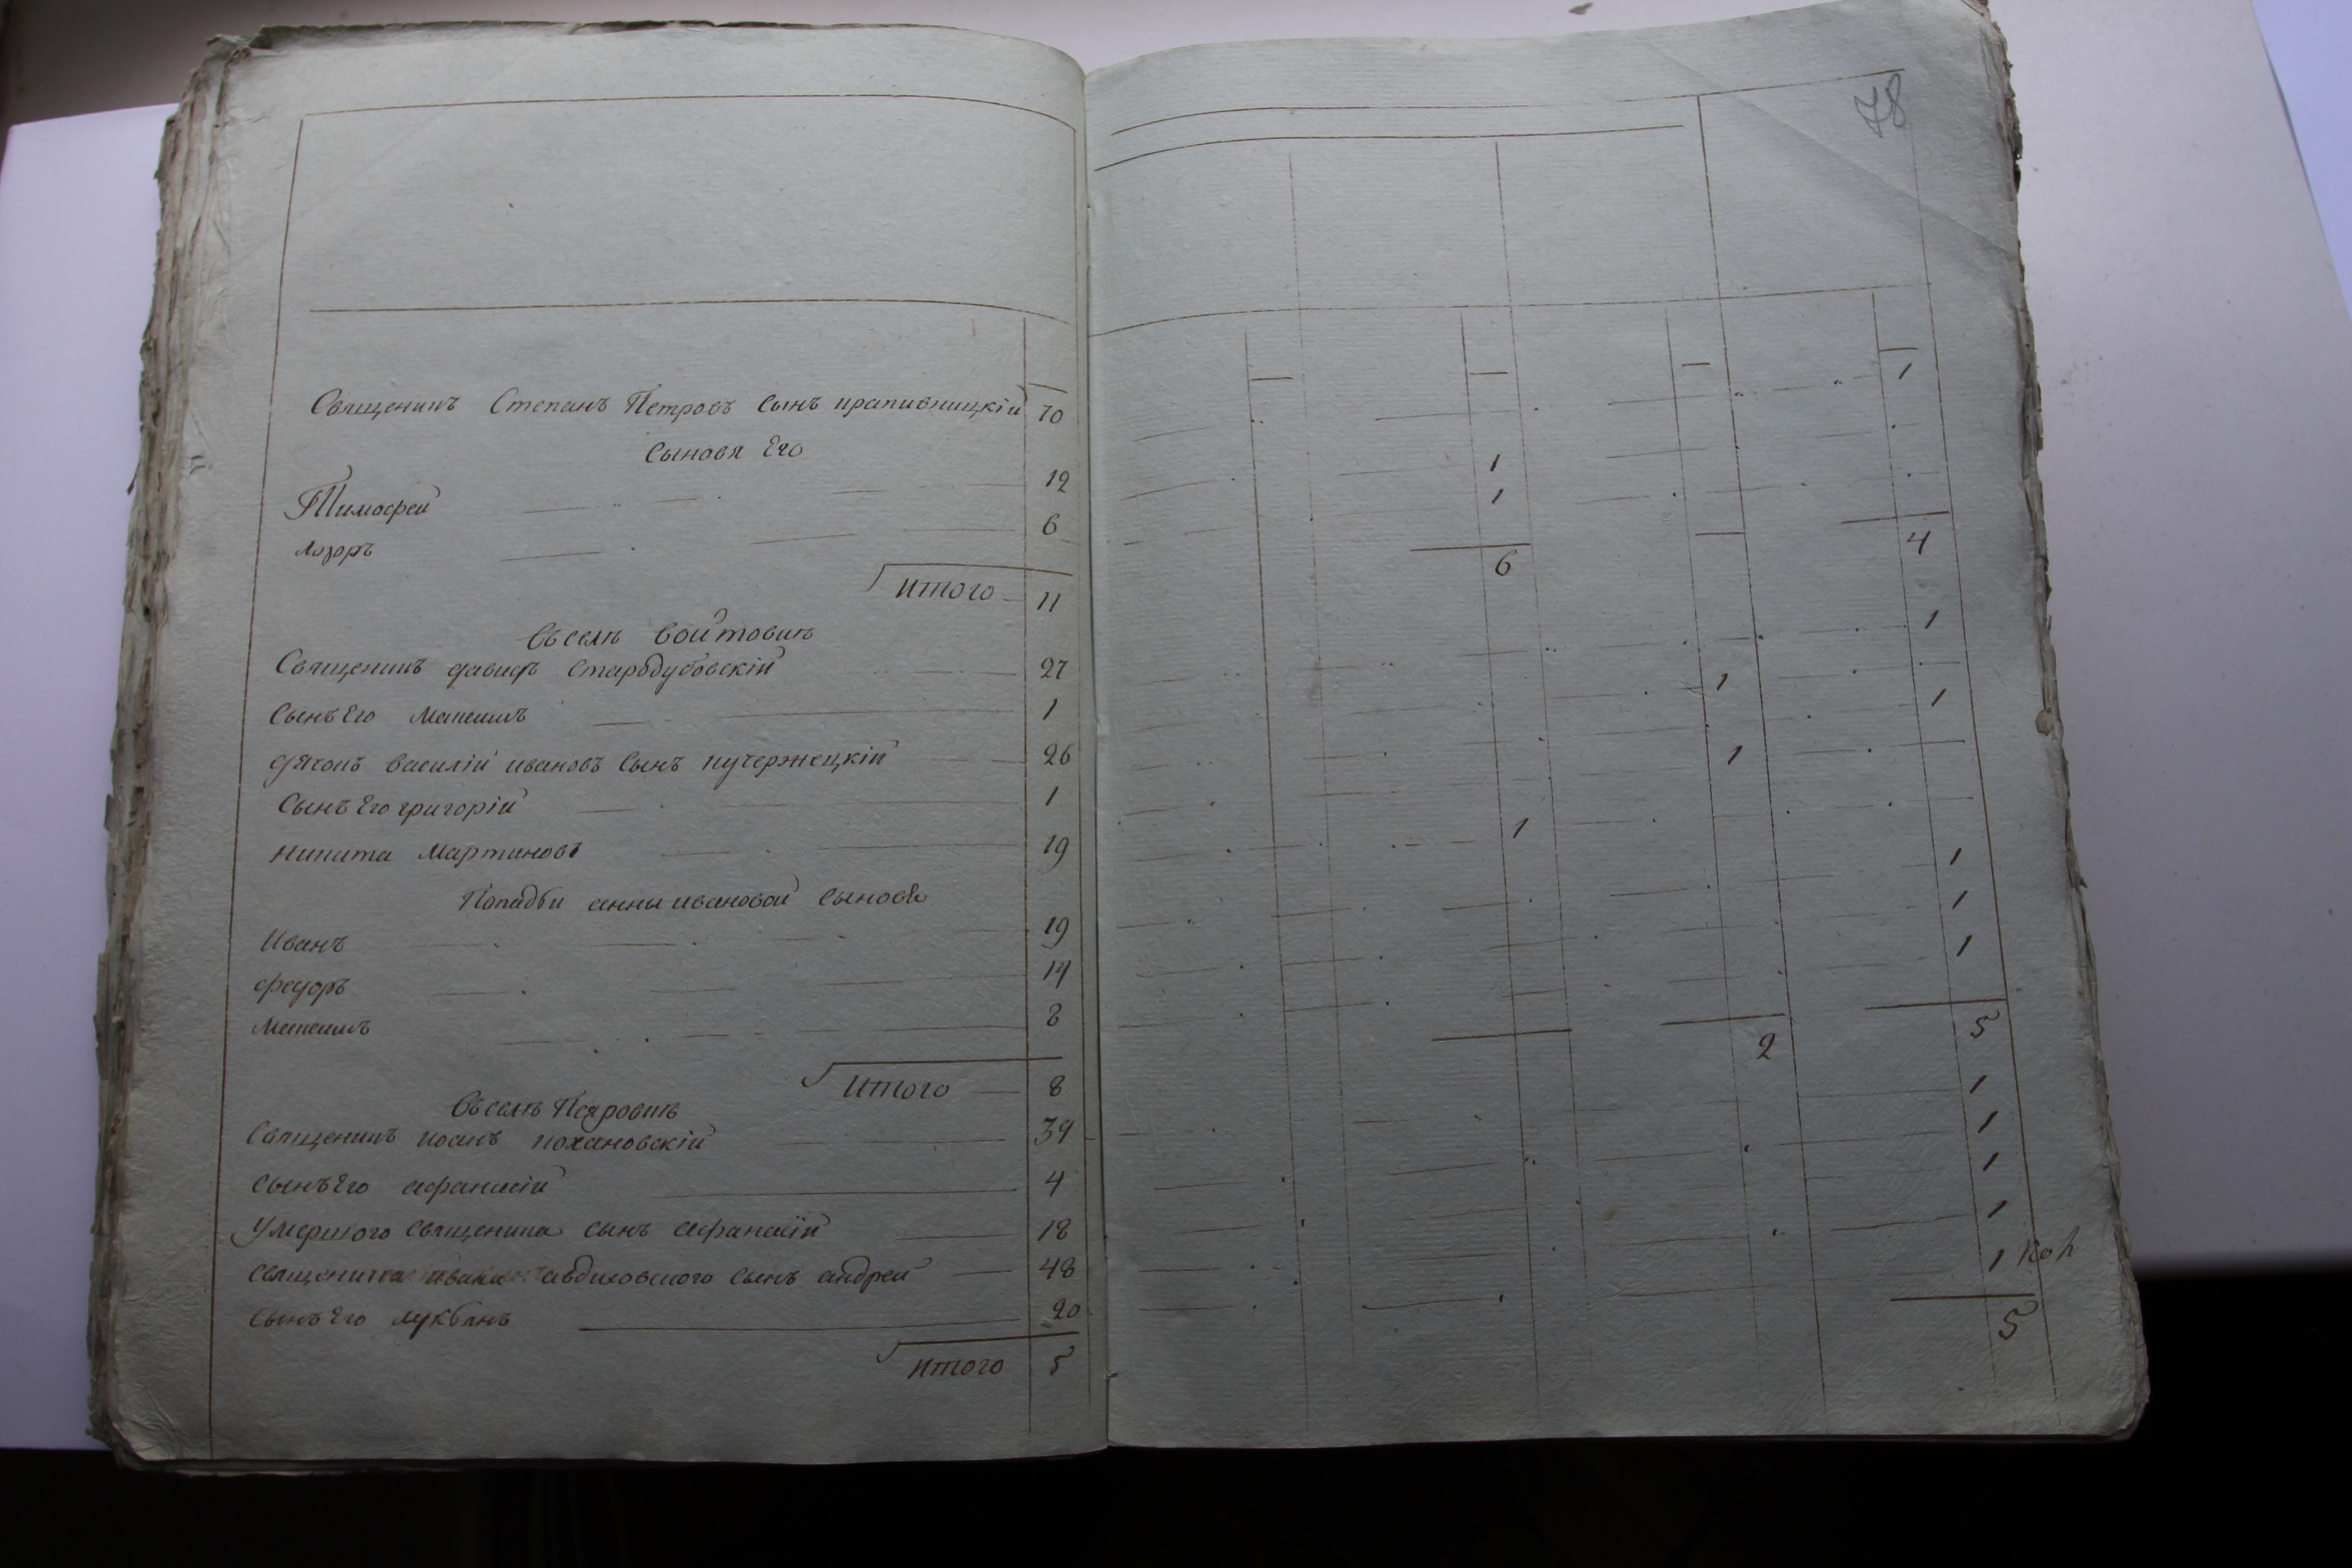 78
Священикъ Степанъ Петровъ сынъ крапивницкій 70 1
Сыновя Его
Тимофей 12 1
Лазоръ 6 1
Итого 11 6 4
Въ селѣ Войтовкѣ
Священикъ давидъ Стародубовскій 27 1
Сынъ Его Максимъ 1 1
дячокъ василій ивановъ Сынъ кучержецкій 26 1
Сынъ Его григорій 1 1
никита Мартиновъ 19 1
Попадьи анны ивановой сыновѣ
Иванъ 19 1
федоръ 14 1
Максимъ 8 1
Итого 8 2 5
Въ селѣ
Священикъ иоанъ кохановскій 39 1
сынъ Его афанасій 4 1
Умершого Священика сынъ Афанасій 18 1
священика ивана авдиховского сынъ андрей 48 1
сынъ Его лукбянъ 20 1
Итого 5 5